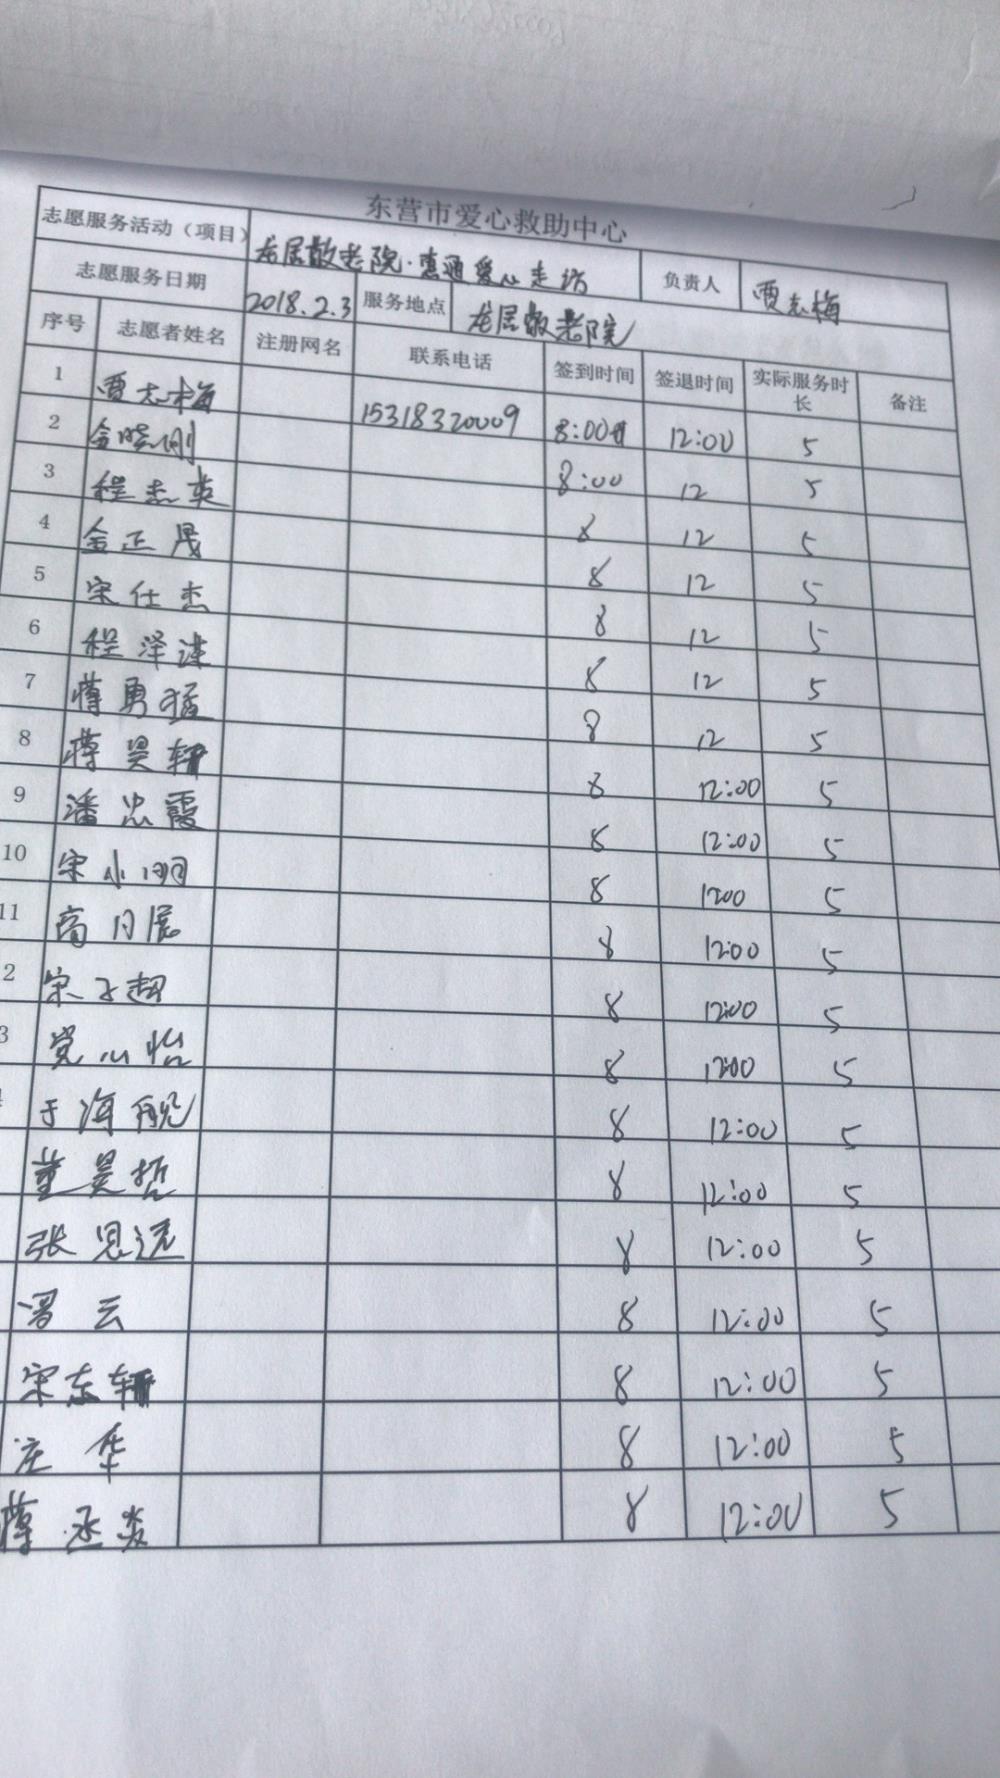 东营市爱心救助中心
志愿服务活动（项目） 龙居敬老院·惠通爱心走访 负责人 贾志梅
志愿服务日期 2018.2.3 服务地点 龙居敬老院
序号 志愿者姓名 注册网名 联系电话 签到时间 签退时间 实际服务时长 备注
1 贾志梅 15318320009 8:00 12:00 5
2 金晓刚 8:00 12 5
3 程志英 8 12 5
4 金正晟 8 12 5
5 宋仕杰 8 12 5
6 程泽 8 12 5
7 蒋勇猛 8 12 5
8 蒋昊轩 8 12:00 5
9 潘忠霞 8 12:00 5
10 宋小明 8 1200 5
11 商月展 8 12:00 5
2 宋子超 8 12:00 5
3 党心怡 8 12:00 5
于海舰 8 12:00 5
董昊哲 8 12:00 5
张思远 8 12:00 5
云 8 12:00 5
宋东轩 8 12:00 5
庄华 8 12:00 5
蒋丞炎 8 12:00 5